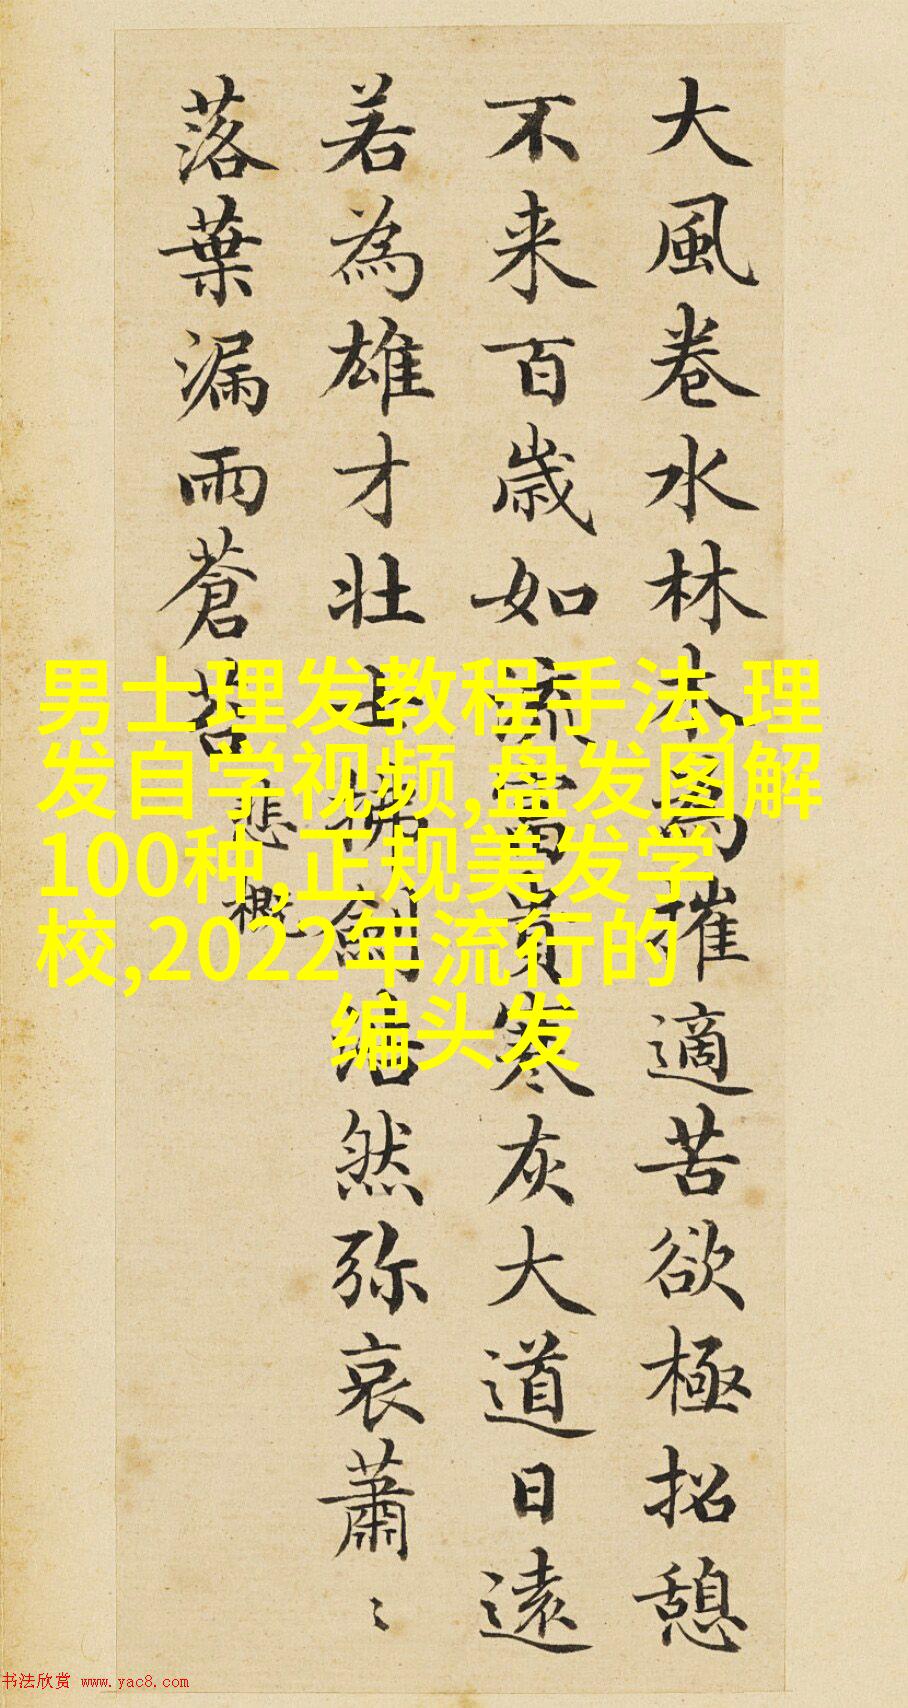 大風卷水林木為摧適苦欲極招憩
不来百歲如流富貴寒灰大道日遠
若為雄才壯士拂劍浩然弥哀蕭〻
落葉漏雨蒼苔
悲概
男士理发教程手法,理
发自学视频,盘发图解
100种,正规美发学
校,2022年流行的
编头发
书法欣赏 www.yac8.com